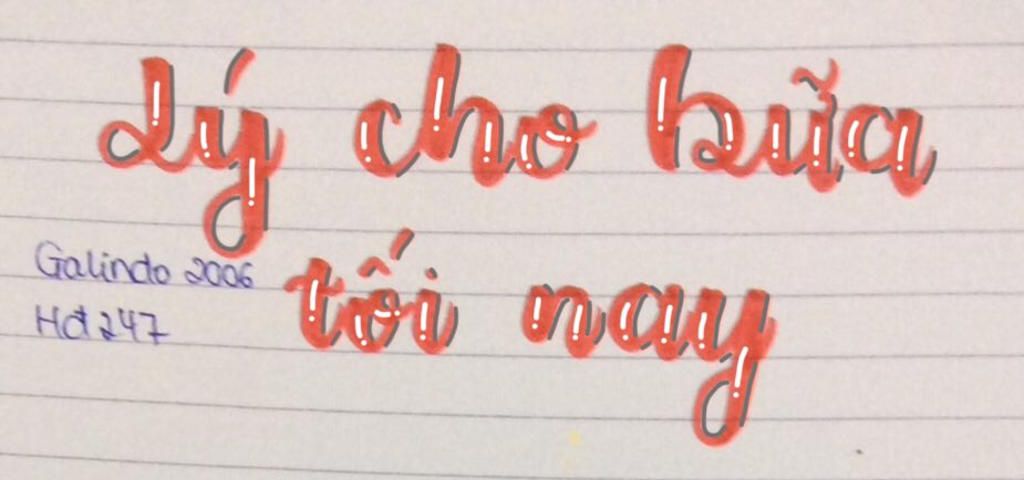 Lý cho bữa
tối nay
Galindo 2006
Hd 247